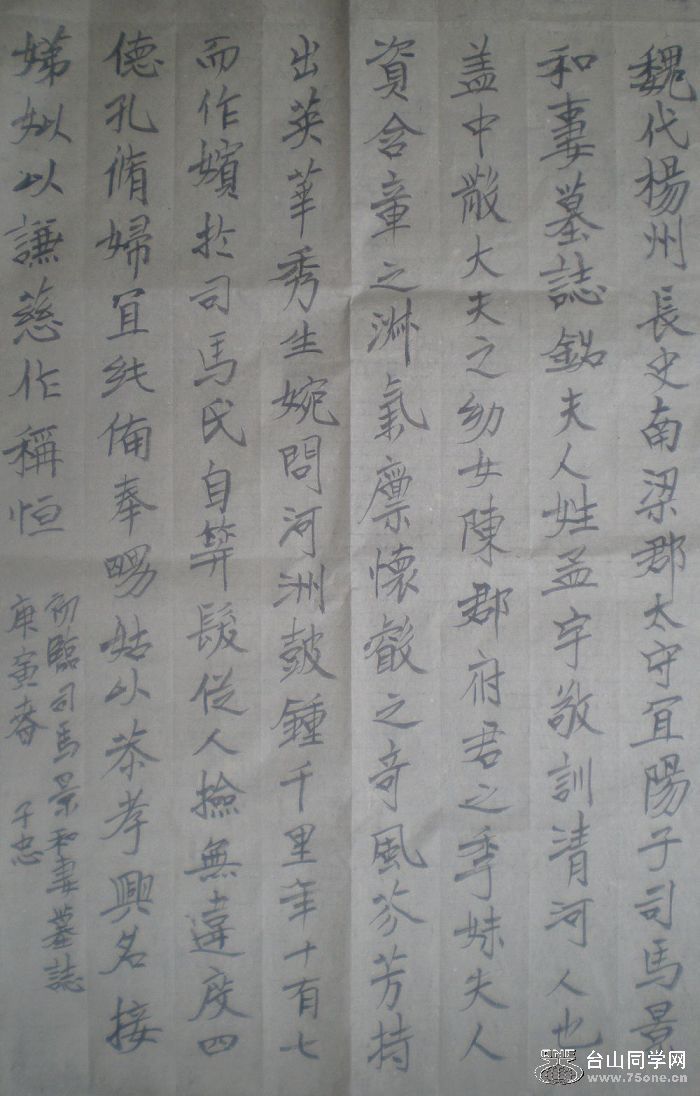 魏代楊州長史南梁郡太守宜陽子司馬景
和妻墓誌銘夫人姓孟字敬訓清河人也
盖中散大夫之幼女陳郡府君之季妹夫人
資含章之淋氣廪懷叡之奇風芬芳持
出英華秀生婉問河洲鼓鍾千里年十有七
而作嬪扵司馬氏自笄髮従人撿無違度四
德孔脩婦冝純備奉舅姑以恭孝興名接
娣姒以謙慈作稱恒
初臨司馬景和妻墓誌
庚寅春 子忠
台山同学网
www.75one.cn